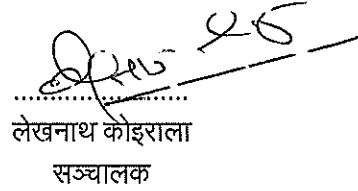 लेखनाथ कोइराला
सञ्चालक